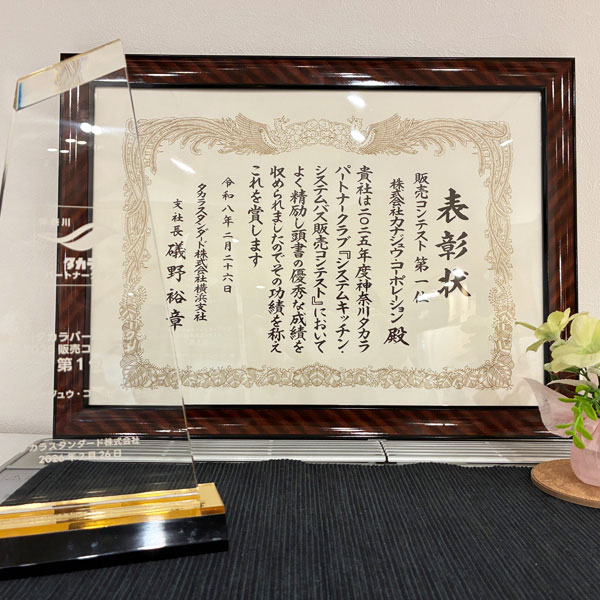 表彰状
販売コンテスト 第一位
株式会社カナジュウ・コーポレーション 殿
貴社は二〇二五年度神奈川タカラ
パートナークラブ『システムキッチン・
システムバス販売コンテスト』において
よく精励し頭書の優秀な成績を
収められましたのでその功績を称え
これを賞します
令和八年二月二十六日
タカラスタンダード株式会社横浜支社
支社長 礒野裕章
カラパー
販売コ
第1
ジュウ・コ
カラスタンダード株式会社
2026年2月26日